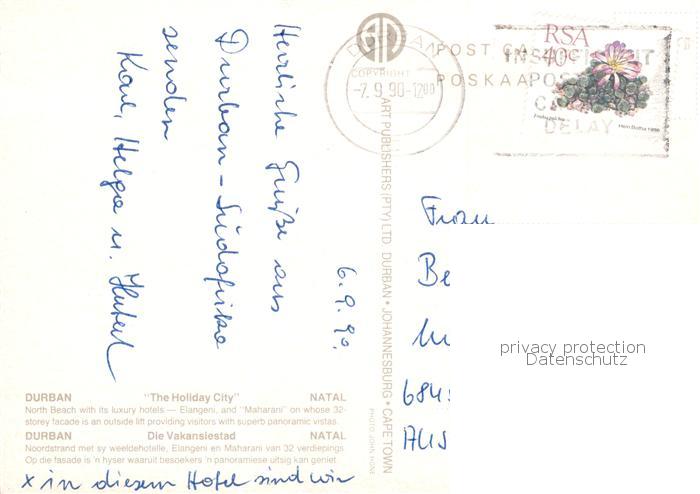 6.9.90.
Herzliche Grüße aus
Durban - Südafrika
senden
Karl, Helga u. Hubert
DURBAN "The Holiday City" NATAL
North Beach with its luxury hotels — Elangeni, and "Maharani" on whose 32-
storey facade is an outside lift providing visitors with superb panoramic vistas.
DURBAN Die Vakansiestad NATAL
Noordstrand met sy weeldehotelle, Elangeni en Maharani van 32 verdiepings
Op die fasade is 'n hyser waaruit besoekers 'n panoramiese uitsig kan geniet
x in diesem Hotel sind wir
COPYRIGHT
ART PUBLISHERS (PTY) LTD DURBAN • JOHANNESBURG • CAPE TOWN
PHOTO JOHN HONE
DURBAN
-7.9.90-1200
POST CA
POSKAA
INSUFFICIENT
POST
DELAY
RSA
40c
Hein Botha 1988
Frau
Be
684
privacy protection
Datenschutz